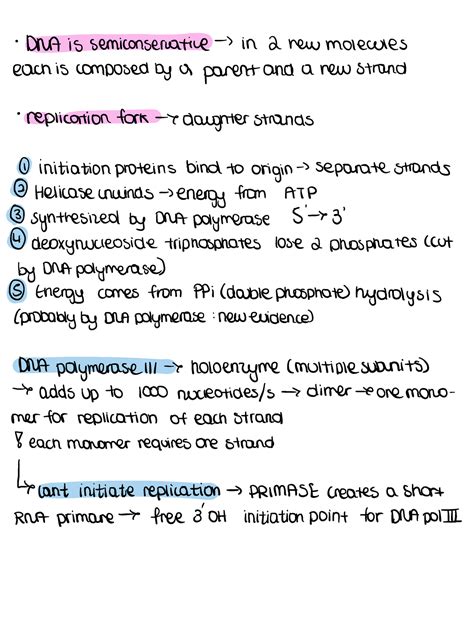 · DNA is semiconservative → in 2 new molecules
each is composed by a parent and a new strand
· replication fork → daughter strands
① initiation proteins bind to origin → separate strands
② Helicase unwinds → energy from ATP
③ synthesized by DNA polymerase 5'→3'
④ deoxynucleoside triphosphates lose 2 phosphates (cut
by DNA polymerase)
⑤ Energy comes from PPi (double phosphate) hydrolysis
(probably by DNA polymerase : new evidence)
DNA polymerase III → holoenzyme (multiple subunits)
→ adds up to 1000 nucleotides/s → dimer → one mono-
mer for replication of each strand
! each monomer requires one strand
↳ cant initiate replication → PRIMASE creates a short
RNA primare → free 3'OH initiation point for DNA pol III